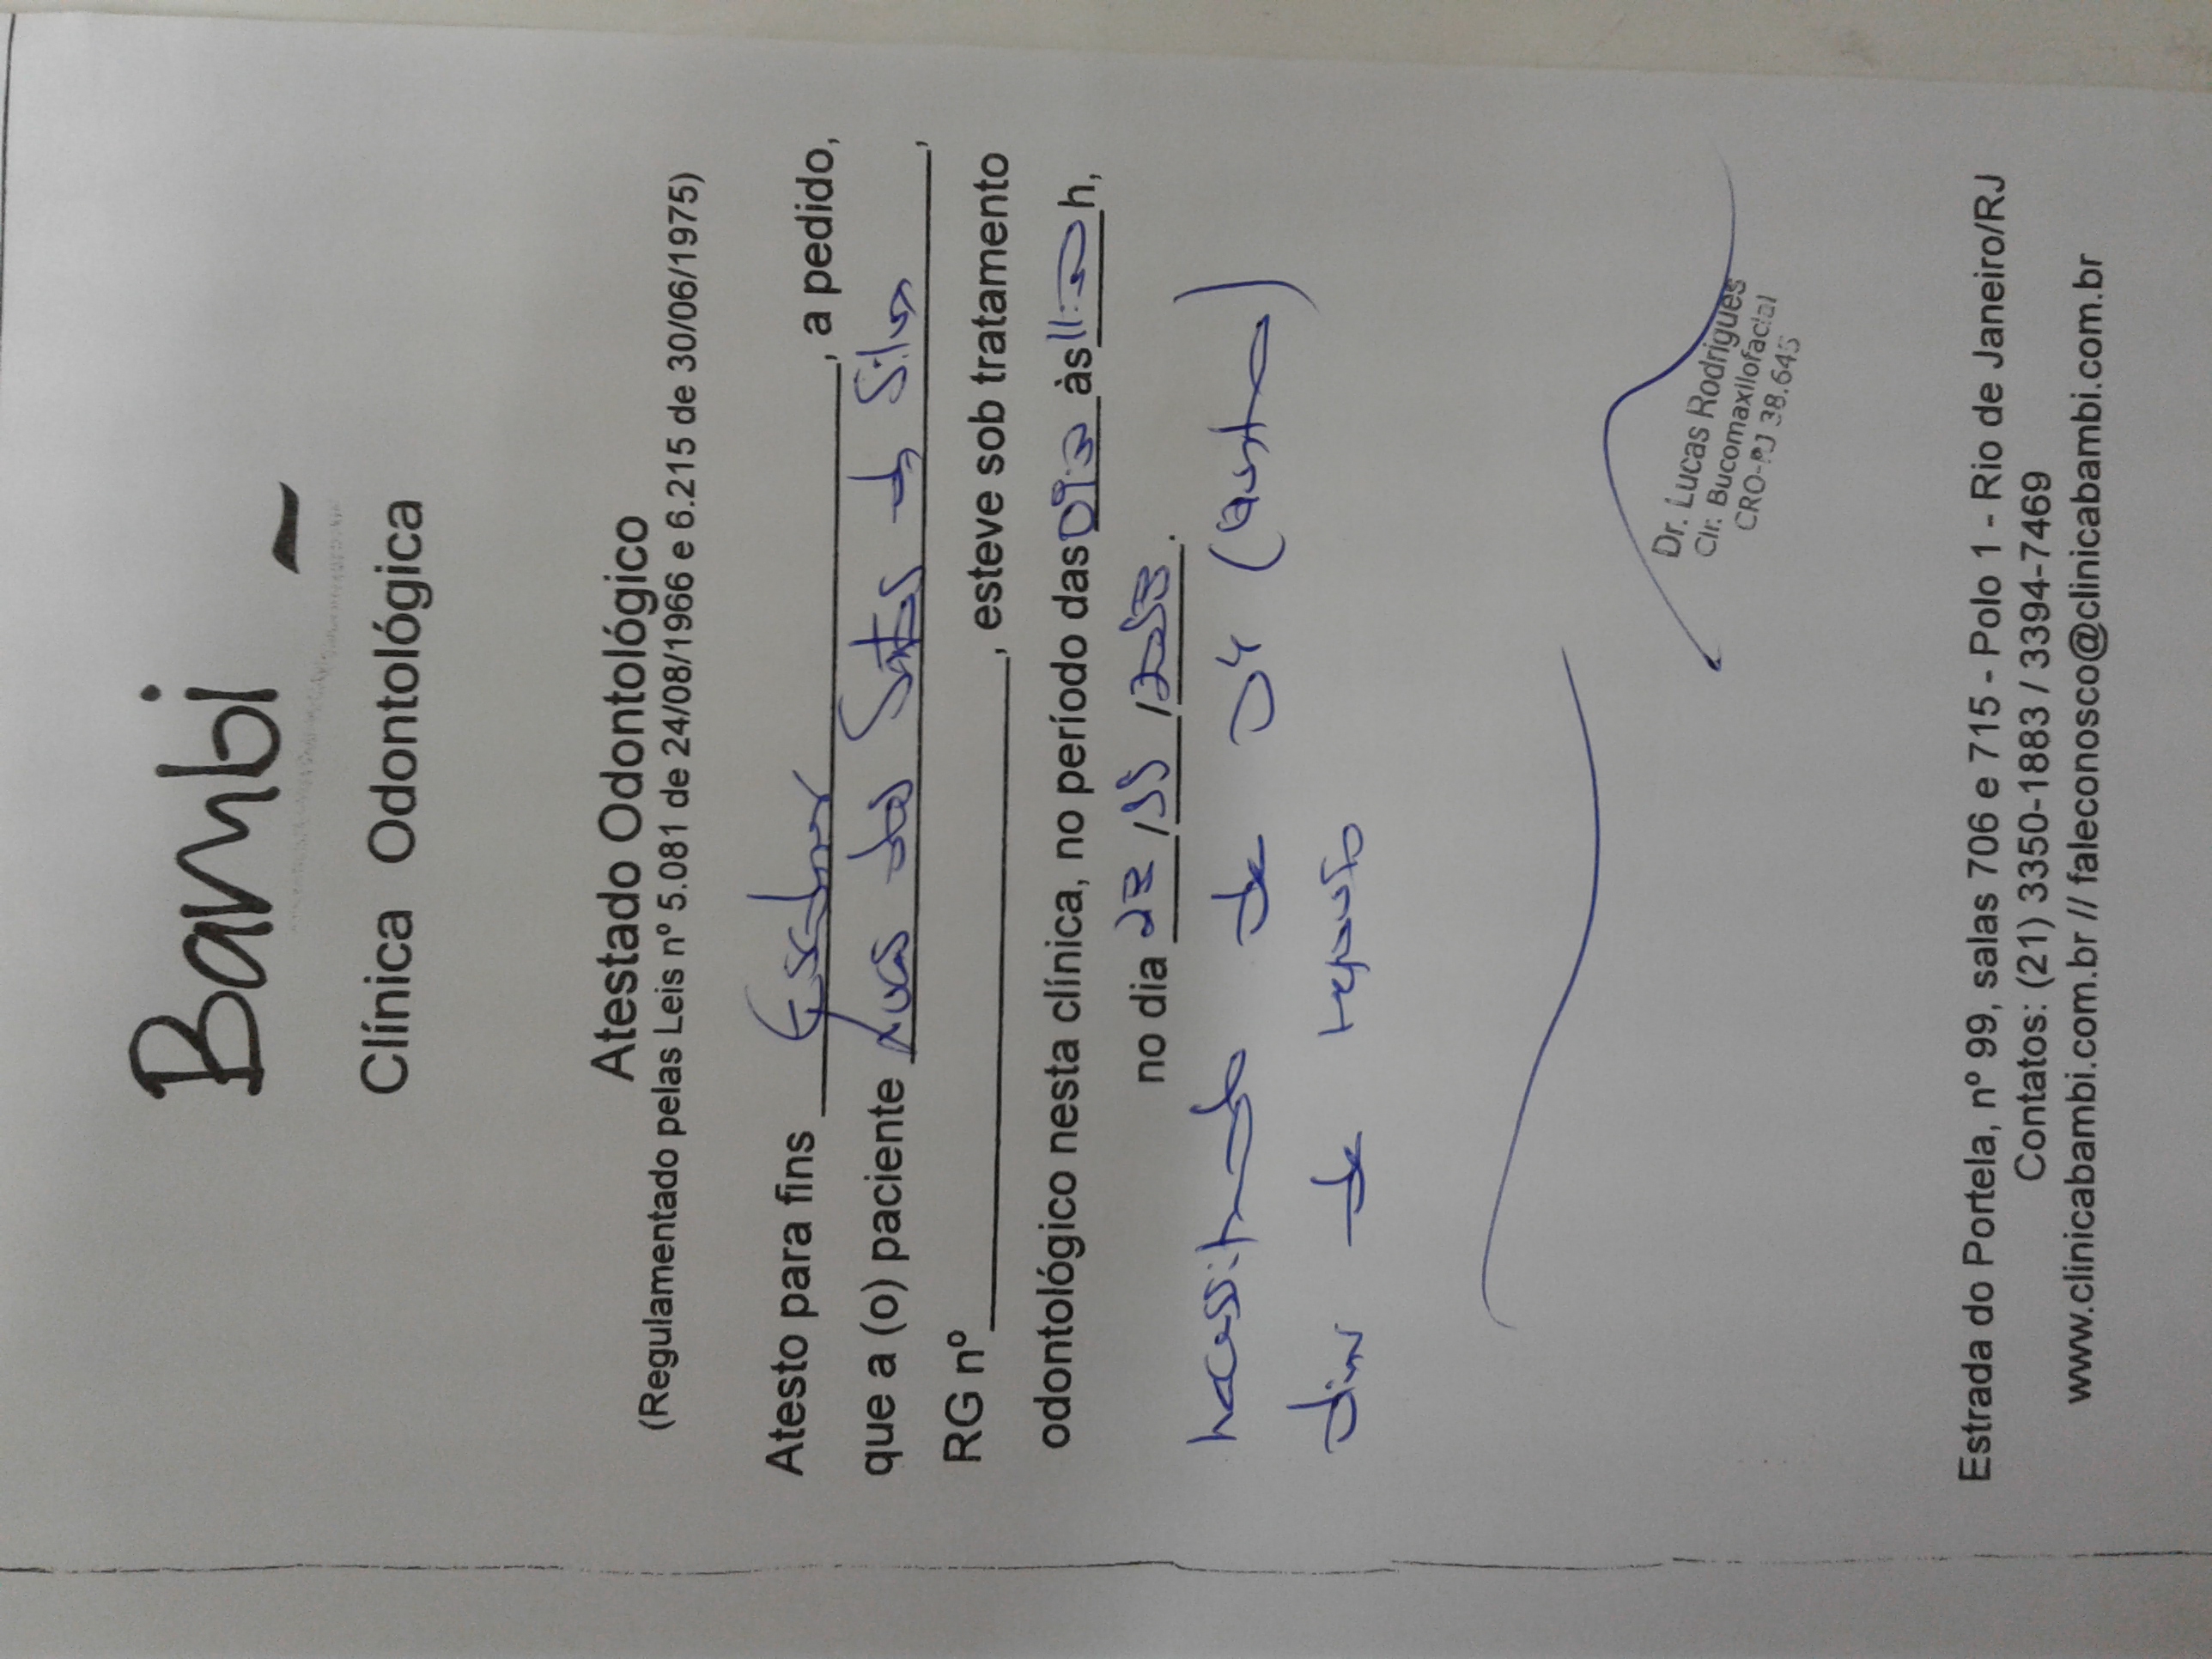 Bambi
Clínica Odontológica
Atestado Odontológico
(Regulamentado pelas Leis nº 5.081 de 24/08/1966 e 6.215 de 30/06/1975)
Atesto para fins Escolar, a pedido,
que a (o) paciente dos Santos da Silva,
RG nº , esteve sob tratamento
odontológico nesta clínica, no período das às 11:00 h,
no dia
necessitando de 04 (quatro)
dias de repouso
Dr. Lucas Rodrigues
Cir. Bucomaxilofacial
CRO-RJ 38.645
Estrada do Portela, nº 99, salas 706 e 715 - Polo 1 - Rio de Janeiro/RJ
Contatos: (21) 3350-1883 / 3394-7469
www.clinicabambi.com.br // faleconosco@clinicabambi.com.br